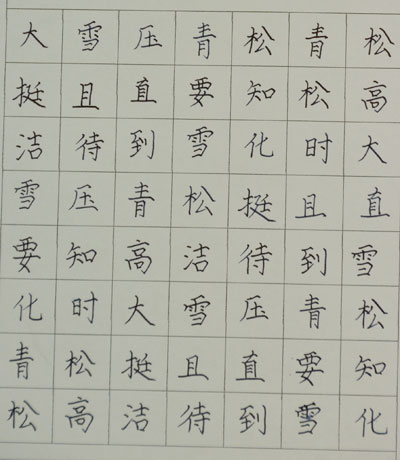 大雪压青松青松
挺且直要知松高
洁待到雪化时大
雪压青松挺且直
要知高洁待到雪
化时大雪压青松
青松挺且直要知
松高洁待到雪化